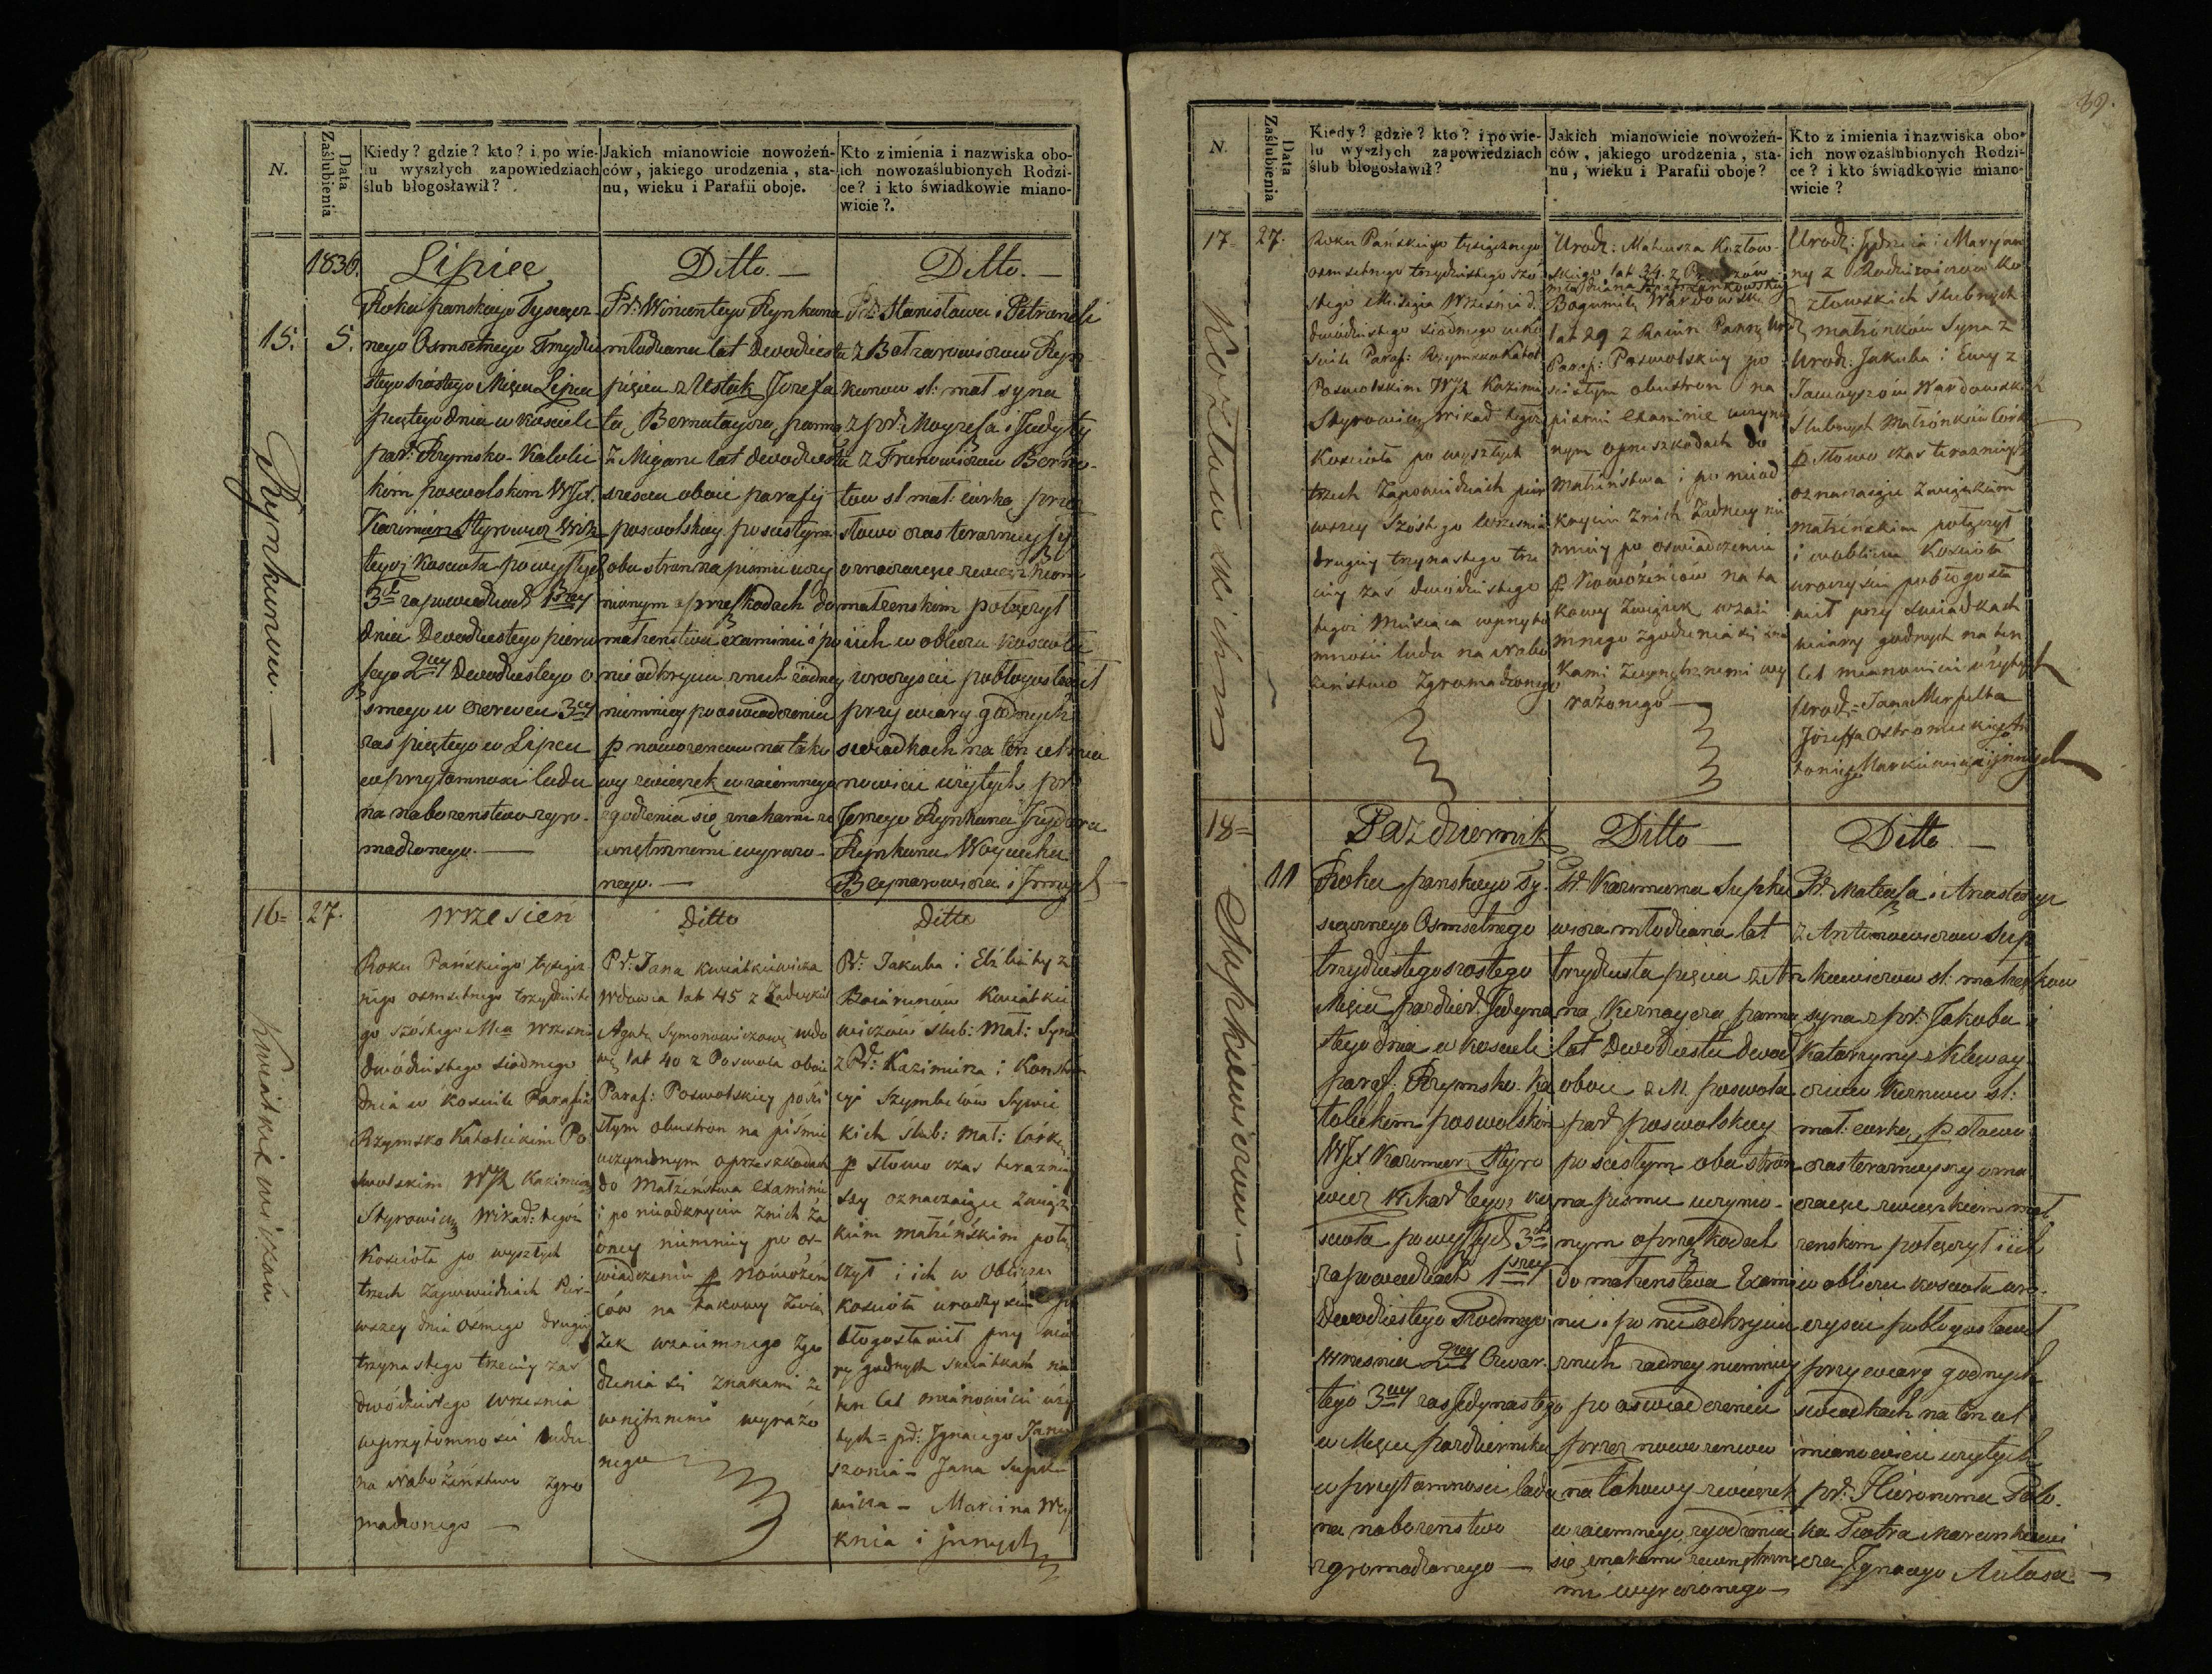 N.
Data Zaślubienia
Kiedy? gdzie? kto? i po wie-
lu wyszłych zapowiedziach
ślub błogosławił?
Jakich mianowicie nowożeń-
ców, jakiego urodzenia, sta-
nu, wieku i Parafii oboje.
Kto z imienia i nazwiska obo-
ich nowozaślubionych Rodzi-
ce? i kto świadkowie miano-
wicie?.
1836.
Lipiec
Ditto. —
Ditto. —
15.
5.
Rynkunow. —
Roku panskiego Tysiącz-
nego Osmsetnego Trzydzie
stego szóstego Mięca Lipca
piątego dnia w kościele
par: Rzymsko-Katolic
kim poswolskim WJX.
Kazimierz Styrowicz Wik
tegoż Kościoła po wyszłych
3ch zapowiedziach 1szey
dnia Dwudziestego pierw
szego 2giey Dwudziestego o
smego w czerwcu 3ciey
zas piątego w Lipcu
w przytomności ludu
na naborzenstwo zgro-
madzonego. —
Pr: Wincentego Rynkuna
młodziana lat Dwadziescia
pięciu z Ustuk Jozefa
tę Bernatayczą pannę
z Migani lat dwadziescia
szesciu oboie parafij
poswolskiey po scisłym
obustron na pismie uczy
nionym o przeszkodach do
małrzenstwa examinie i po
nie odkryciu z nich żadney
niemniey po oswiadczeniu
p nowozencow na tako
wy związek wzaiemnego
zgodzenia się znakami ze
wnętrznemi wyrażo-
nego. —
Pr: Stanisława i Petroneli
z Botzarowiczow Ryn
kunow sl: mał syna
z pr: Mayzesa i Judyty
z Trunowiczow Berna-
tow sl mał: curkę przez
słowo czas terazniejszy
oznaczaiące związkiem
małzenskim połączył
i ich w obliczu Kościoła
uroczyscie pobłogosławił
przy wiary godnych
swiadkach na ten cel mia
nowicie użytych pr:
Jerzego Rynkuna Judzara
Rynkuna Woyciecha
Beynarowicza i Innych
16=
27.
Wrzesień
Ditto
Ditto
Kwiatkiewiczów.
Roku Pańskiego tysiącz
nego osmsetnego trzydzieste
go szóstego Mca Wrzesnia
dwódziestego siódmego
dnia w Kościele Parafial
Rzymsko Katolickim Po
swolskim WJX Kazimierz
Styrowicz Wikad: tegoż
Kościoła po wyszłych
trzech Zapowiedziach Pier-
wszey dnia ósmego drugiey
trzynastego trzeciey zaś
dwódziestego wrzesnia
w przytomności ludu
na Nabożeństwo zgro
madzonego —
Pr: Jana Kwiatkiewicza
Wdowca lat 45 z Zadeykiń
Agatę Symonowiczową wdo
wę lat 40 z Poswola oboie
Paraf: Poswolskiey po ści
słym obustron na piśmie
uczynionym o przeszkodach
do Małżeństwa Examinie
i po nieodkryciu z nich ża
dney niemniey po os-
wiadczeniu p Nowożeń
ców na takowy Zwią
zek wzaiemnego zgo
dzenia się znakami ze
wnętrznemi wyrażo
nego
Pr: Jakuba i Elżbiety z
Baiorunów Kwiatkie
wiczów Ślub: Mał: Syna
z Pr: Kazimierza i Konstan
cyi Szymbelów Sywic
kich ślub: Mał: córkę
p słowo czas teraźniey
szy oznaczaiące Związ
kiem Małżeńskim połą
czył i ich w Obliczu
Kościoła uroczyscie po
błogosławił przy wia
ry godnych swiadkach na
ten Cel mianowicie uży
tych = pr: Ignacego Janu
szonia — Jana Supkie
wicza — Marcina Wey
knia i Innych
39.
N.
Data Zaślubienia
Kiedy? gdzie? kto? i po wie-
lu wyszłych zapowiedziach
ślub błogosławił?
Jakich mianowicie nowożeń-
ców, jakiego urodzenia, sta-
nu, wieku i Parafii oboje?
Kto z imienia i nazwiska obo-
ich nowozaślubionych Rodzi-
ce? i kto świadkowie miano-
wicie?
17=
27.
Kozłowskichm
Roku Pańskiego tysiącznego
osmsetnego trzydziestego szó
stego Miesiąca Września d.
dwódziestego siódmego w ko
ściele Paraf: Rzymsko Katol
Poswolskim WJX Kazimie
Styrowicz Wikad tegoż
Kościoła po wyszłych
trzech Zapowiedziach pier
wszey Szóstego Wrzesnia
drugiey trzynastego trze
ciey zaś dwódziestego
tegoż Miesiąca w przyto
mności ludu na Nabo
żeństwo Zgromadzonego
Urodz: Mateusza Kozłow-
skiego lat 34. z
młodziana
Bogumiłę Wardowską
lat 29 z Pannę Ur
Paraf: Poswolskiey po
scisłym obustron na
piśmie Examinie uczynio
nym o przeszkodach do
Małżeństwa i po nieod
kryciu z nich Żadney nie
mniey po oswiadczeniu
p Nowożeńców na ta
kowy Związek wzaie
mnego zgodzenia się zna
kami Zewnętrznemi wy
rażonego —
Urodz: Jędrzeia i Maryan
ny z Rodziewiczow Ko
złowskich Ślubnych
małżonków Syna z
Urodz: Jakuba i Ewy z
Tomaszów Wardowskich
Ślubnych Małżonków Cork
p słowo czas terazniejsz
oznaczaiące Związkiem
małżenskim połączył
i w obliczu Kościoła
uroczyście pobłogosła
wił przy Swiadkach
wiary godnych na ten
Cel mianowicie użytych
Urodz= Jana Merfelta
Józefa Ostromeckiego An
toniego Markiewicza i innych
18=
11
Październik
Ditto —
Ditto —
Supkiewiczow. —
Roku panskiego Ty-
siącznego Osmsetnego
trzydziestego szostego
Mięca paździer: Jedyna
stego dnia w kosciele
paraf: Rzymsko-Ka
tolickim poswolskim
WJX Kazimierz Styro
wicz Wikad tegoz ko
scioła po wyszłych 3ch
zapowiedziach 1szey
Dwudziestego siodmego
Wrzesnia 2giey Czwar-
tego 3ciey zas Jedynastego
w Mięcu październiku
w przytomnosci ludu
na naborzenstwo
zgromadzonego —
Pr: Kazimierza Supkie
wicza młodziana lat
trzydziestu pięciu z An
nę Kernayczą pannę
lat Dwudziestu dwoch
oboie z M. poswola
par poswolskiey
po scisłym obustron
na pismie uczynio-
nym o przeszkodach
do małrzenstwa Exami
nie i po nieodkryciu
z nich zadney niemniey
po oswiadczeniu
przez nowozencow
na takowy związek
wzaiemnego zgodzenia
się znakami zewnętrzne
mi wyrażonego —
Pr: Mateusza i Anastazyi
z Antonowiczow Sup
kiewiczow sl: małżonkow
syna z pr: Jakuba i
Katarzyny z Kleway
ciow Kernow sl:
mał: curkę, p słowo
czas terazniejszy ozna
czaiące związkiem mał
zenskim połączył i ich
w obliczu koscioła uro-
czyscie pobłogosławił
przy wiary godnych
swiadkach na ten cel
mianowicie użytych
pr: Hieronima Polo-
ka Piotra Marcinkiewi
cza Ignacego Aulasa —